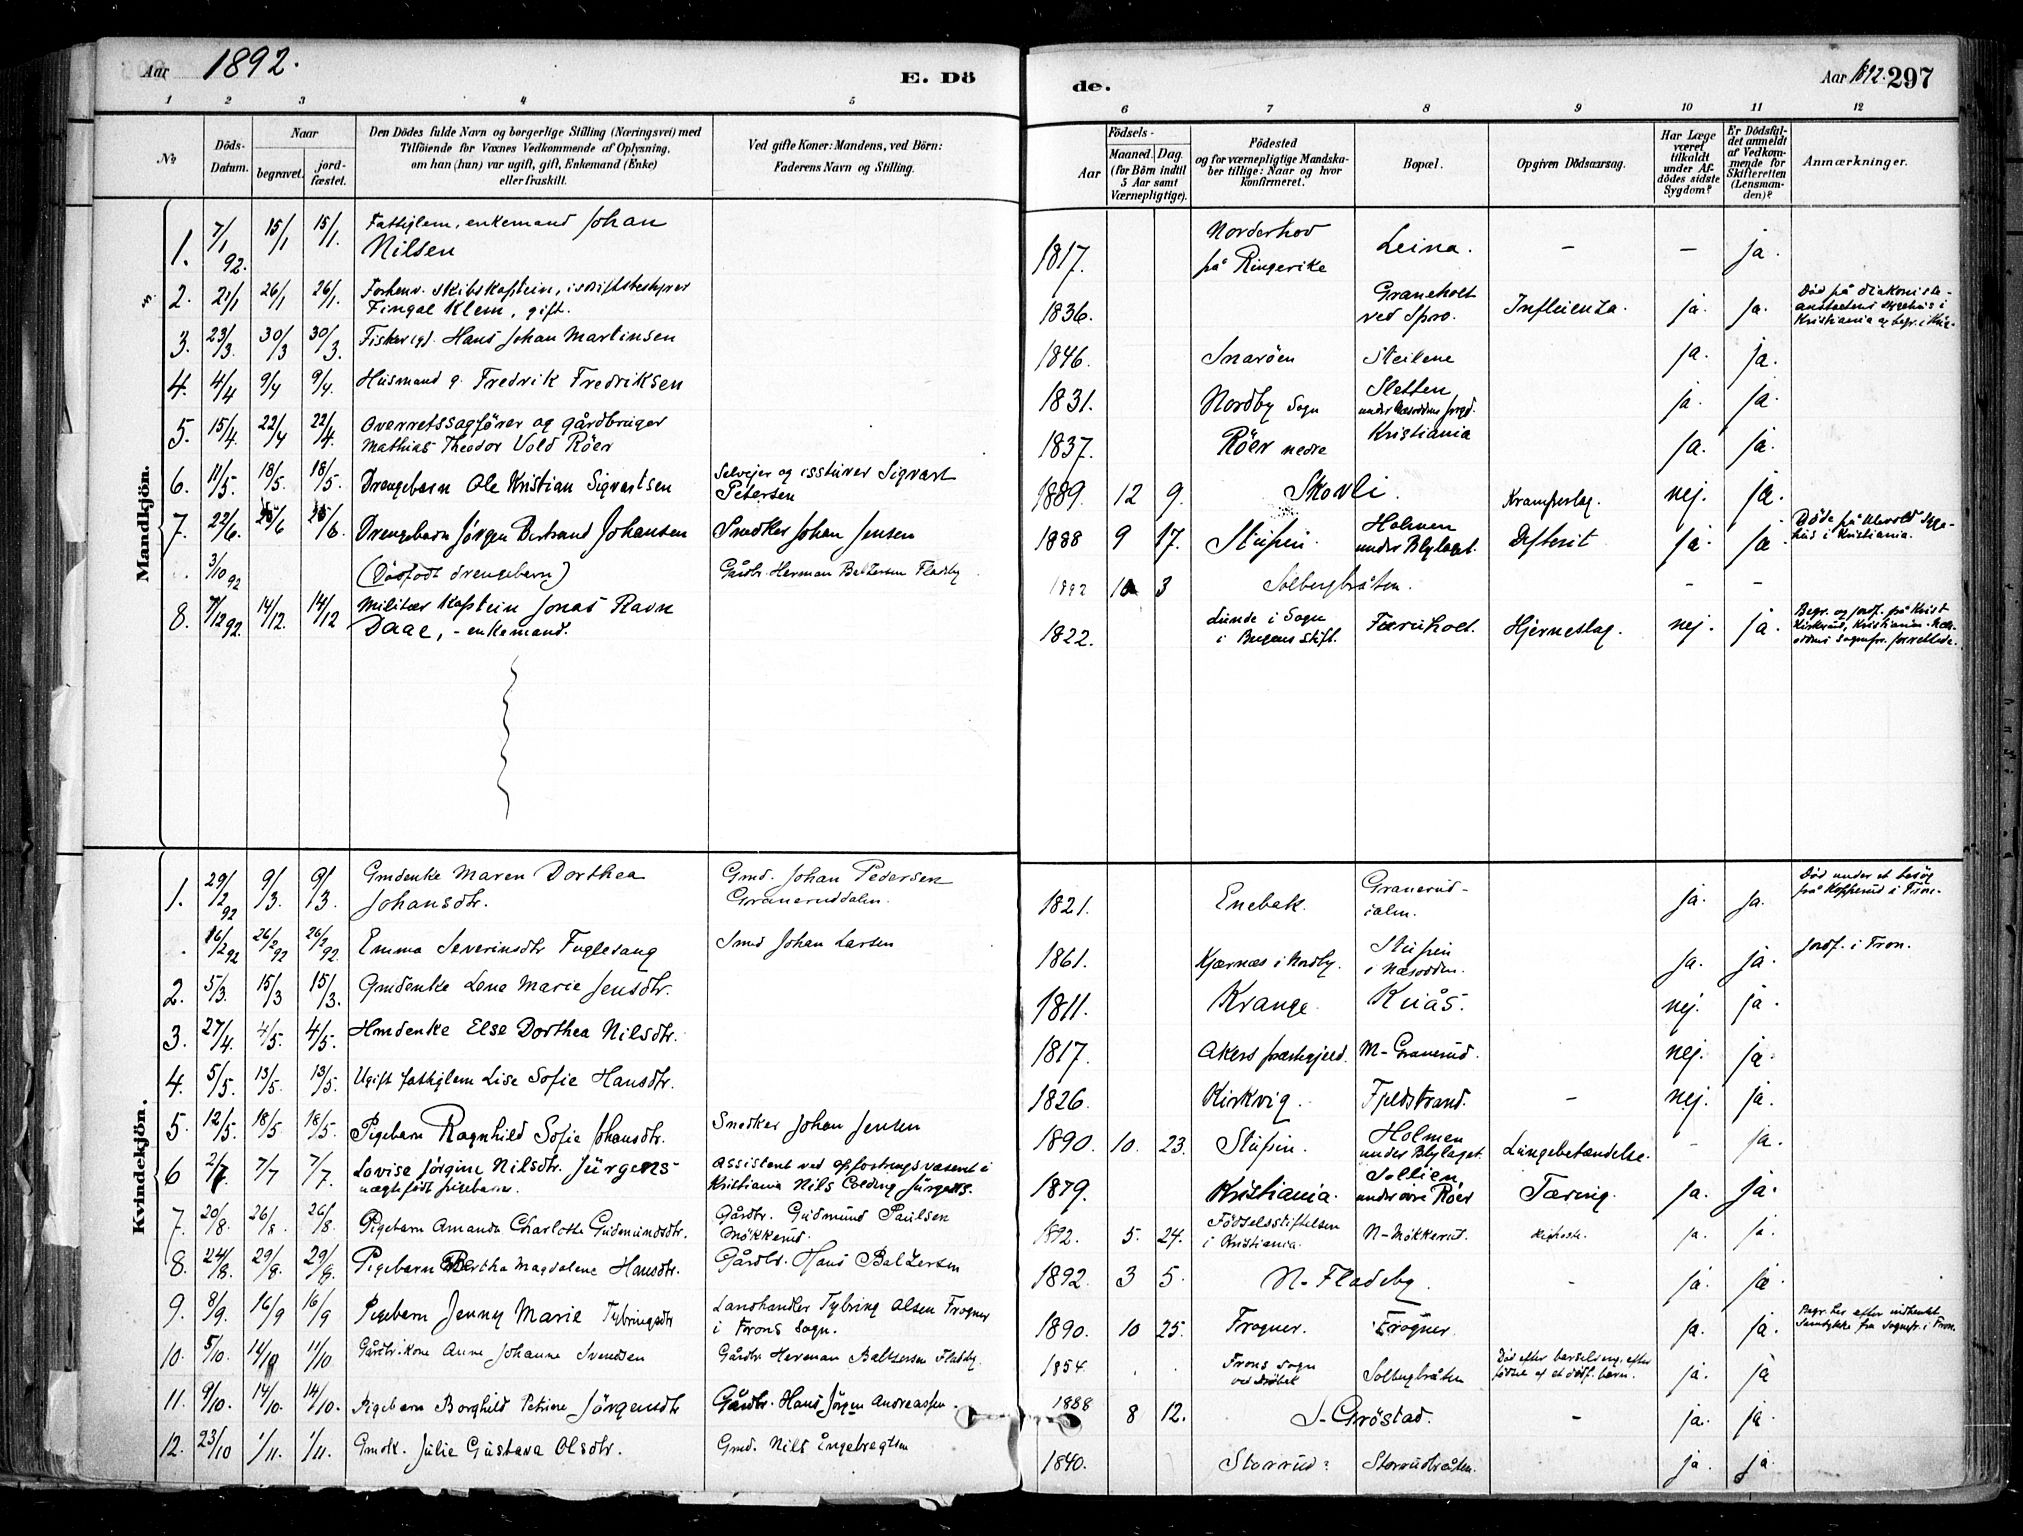 Aar 1892.
E. Döde.
Aar 1892. 297
1 2 3 4 5 6 7 8 9 10 11 12
No
Döds-Datum.
Naar
begravet.
jord-fæstet.
Den Dödes fulde Navn og borgerlige Stilling (Næringsvei) med
Tilföiende for Voxnes Vedkommende af Oplysning,
om han (hun) var ugift, gift, Enkemand (Enke)
eller fraskilt.
Ved gifte Koner: Mandens, ved Börn:
Faderens Navn og Stilling.
Födsels-
Aar
Maaned. Dag.
(for Börn indtil
5 Aar samt
Værnepligtige).
Födested
og for værnepligtige Mandska-
ber tillige: Naar og hvor
konfirmeret.
Bopæl.
Opgiven Dödsaarsag.
Har Læge
været
tilkaldt
under Af-
dödes sidste
Sygdom?
Er Dödsfal-
det anmeldt
af Vedkom-
mende for
Skifteretten
(Lensman-
den)?
Anmærkninger.
Mandkjön.
1. 7/1 92. 15/1 15/1. Fattiglem, enkemand Johan
Nilsen 1817. Norderhov
på Ringerike Leina. – – ja.
2. 21/1 26/1 26/1. Forhenv. skibskaptein, isdriftsbestyrer
Fingal Klem, gift. 1836. Graneholt
ved Spro. Influenza. ja. ja. Död på diakonisse-
anstaltens sygehus i
Kristiania og begr. i Kria-
3. 23/3. 30/3 30/3. Fisker og d. Hans Johan Martinsen 1846. Snaröen Steilene ja. ja.
4. 4/4 9/4 9/4. Husmand g. Fredrik Fredriksen 1831. Nordby Sogn Sletten
under Næsoddens prgd. ja. ja.
5. 15/4. 22/4 22/4. Overretssagförer og gårdbruger
Mathias Theodor Vold Röer 1837. Röer nedre Kristiania ja. ja.
6. 11/5. 18/5. 18/5. Drengebarn Ole Kristian Sigvartsen Selveier og isstuver Sigvart
Petersen 1889. 12 9. Skovli. Krampeslag. nej. ja.
7. 22/6. 25/6 25/6. Drengebarn Jörgen Bertrand Johansen Snedker Johan Jensen 1888 9 17. Stupin. Holmen
under Blylaget. Difterit ja. ja. Döde på Ullevold Syge-
hus i Kristiania.
3/10 92 (Dödfödt drengebarn) Gårdbr. Herman Baltzersen Fladeby 1892 10 3 Solbergbråten. – –
8. 7/12 92. 14/12. 14/12 Militær kaptein Jonas Ravn
Daae, – enkemand. 1822. Lunde i Sogn
i Bergens Stift. Færeholt. Hjerneslag. nej. ja. Begr. og jordf. på Krist
Kirkegd, Kristiania. Næs-
oddens Sognepr. forrettede.
Kvindekjön.
1. 29/2 92 9/3. 9/3. Gmdenke Maren Dorthea
Johansdtr. Gmd. Johan Pedersen
Graneruddalen. 1821. Enebak. Granerud-
dalen. ja. ja. Död under et besög
på Kopperud i Fron.
16/2 92 26/2 92 26/2 92. Emma Severinsdtr Fuglesang Smed Johan Larsen 1861. Kjærnæs i Nordby. Stupin
i Næsodden. ja. ja. Jordf. i Fron.
2. 5/3. 15/3 15/3. Gmdenke Lena Marie Jensdtr. 1811. Krange. Kuås. nej. ja.
3. 27/4. 4/5. 4/5. Hmdenke Else Dorthea Nilsdtr. 1817. Akers præstegjeld. M-Granerud. nej. ja.
4. 5/5. 13/5. 13/5. Ugift fattiglem Lise Sofie Hansdtr. 1826. Kirkvig. Fjeldstrand. – nej. ja.
5. 12/5. 18/5. 18/5. Pigebarn Ragnhild Sofie Johansdtr. Snedker Johan Jensen 1890. 10. 23. Stupin. Holmen
under Blylaget. Lungebetændelse. – ja.
6 2/7 7/7 7/7. Lovise Jörgine Nilsdtr. Jürgens
uægtefödt pigebarn. Assistent ved opfostringsvæsenet i
Kristiania Nils Colding Jürgens. 1879. Kristiania. Sollien,
under övre Röer Tæring. ja. ja.
7. 20/8. 26/8. 26/8. Pigebarn Amanda Charlotte Gudmundsdtr. Gårdbr. Gudmund Paulsen
Mökkerud. 1892. 5. 24. Födselsstiftelsen
i Kristiania. N-Mökkerud. Kighoste. ja. ja.
8. 24/8. 29/8. 29/8. Pigebarn Bertha Magdalene Hansdtr. Gårdbr. Hans Baltzersen 1892. 3 5. N-Fladeby. – ja. ja.
9. 8/9. 16/9 16/9 Pigebarn Jenny Marie Tybringsdtr Landhandler Tybring Olsen Frogner
i Frons Sogn. 1890. 10 25. Frogner. Frogner. ja. ja. Begr. her efter indhentet
Samtykke fra Sognepr. i Fron.
10. 5/10. 14/10 11/10 Gårdbr.kone Anne Johanne Svendsen Gårdbr. Herman Baltzersen Fladeby. 1854. Frons Sogn
ved Dröbak Solbergbråten Död efter barselseng, efter
födsel af et dödf. barn. ja. ja
11. 9/10. 14/10. 14/10. Pigebarn Borghild Petrine Jörgensdtr Gårdbr. Hans Jörgen Andreassen. 1888 8 12. S-Gröstad. – ja. ja
12. 23/10 1/11. 1/11. Gmdk. Julie Gustava Olsdtr. Gmd. Nils Ingebregtsen 1840. Storrud. Storrudbråten. ja. ja.